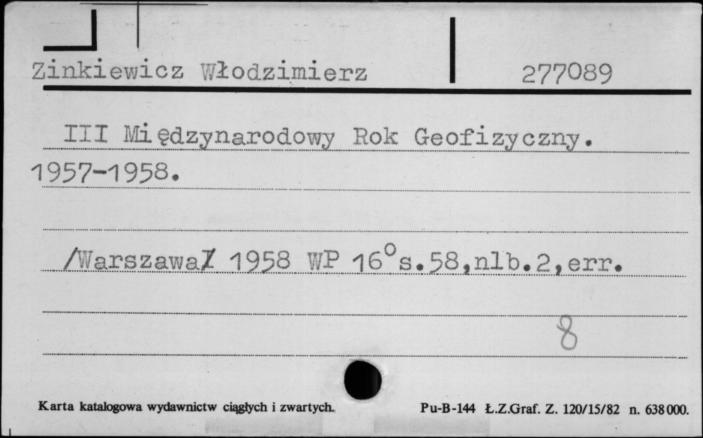 Zinkiewicz Włodzimierz 277089
III Międzynarodowy Rok Geofizyczny.
1957-1958.
/Warszawa/ 1958 WP 16° s.58,nlb.2,err.
8
Karta katalogowa wydawnictw ciągłych i zwartych. Pu-B-144 Ł.Z.Graf. Z. 120/15/82 n. 638000.